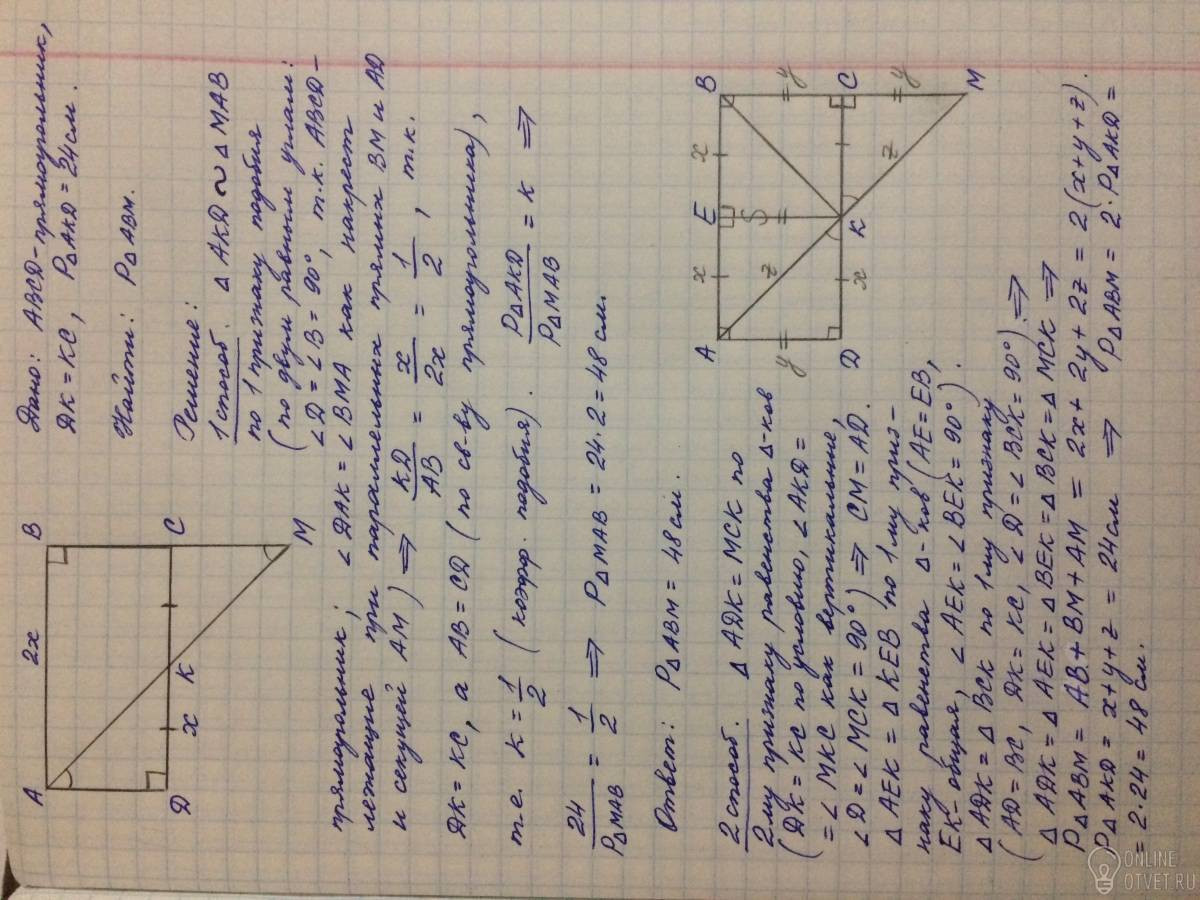 A 2x B
D x K C
M
Дано: ABCD-прямоугольник,
DK = KC, P△AKD = 24см.
Найти: P△ABM.
Решение:
1 способ. △ AKD ~ △ MAB
по 1 признаку подобия
(по двум равным углам:
∠D = ∠B = 90°, т.к. ABCD-
прямоугольник; ∠DAK = ∠BMA как накрест
лежащие при параллельных прямых BM и AD
и секущей AM) ⇒ KD/AB = x/2x = 1/2, т.к.
DK = KC, а AB = CD (по св-ву прямоугольника),
т.е. K = 1/2 (коэфф. подобия). P△AKD/P△MAB = K ⇒
24/P△MAB = 1/2 ⇒ P△MAB = 24·2 = 48см.
Ответ: P△ABM = 48см.
2 способ. △ ADK = MCK по
2му признаку равенства △-ков
(DK = KC по условию, ∠AKD =
= ∠MKC как вертикальные,
∠D = ∠MCK = 90°) ⇒ CM = AD.
△ AEK = △ KEB по 1му приз-
наку равенства △-ков (AE = EB,
EK - общая, ∠AEK = ∠BEK = 90°).
△ADK = △ BCK по 1му признаку
(AD = BC, DK = KC, ∠D = ∠BCK = 90°). ⇒
△ADK = △AEK = △BEK = △BCK = △MCK ⇒
P△ABM = AB + BM + AM = 2x + 2y + 2z = 2(x+y+z).
P△AKD = x+y+z = 24см ⇒ P△ABM = 2·P△AKD =
= 2·24 = 48см.
A x E x B
y z S y
D x K C
z y
M
ONLINE
OTVET.RU